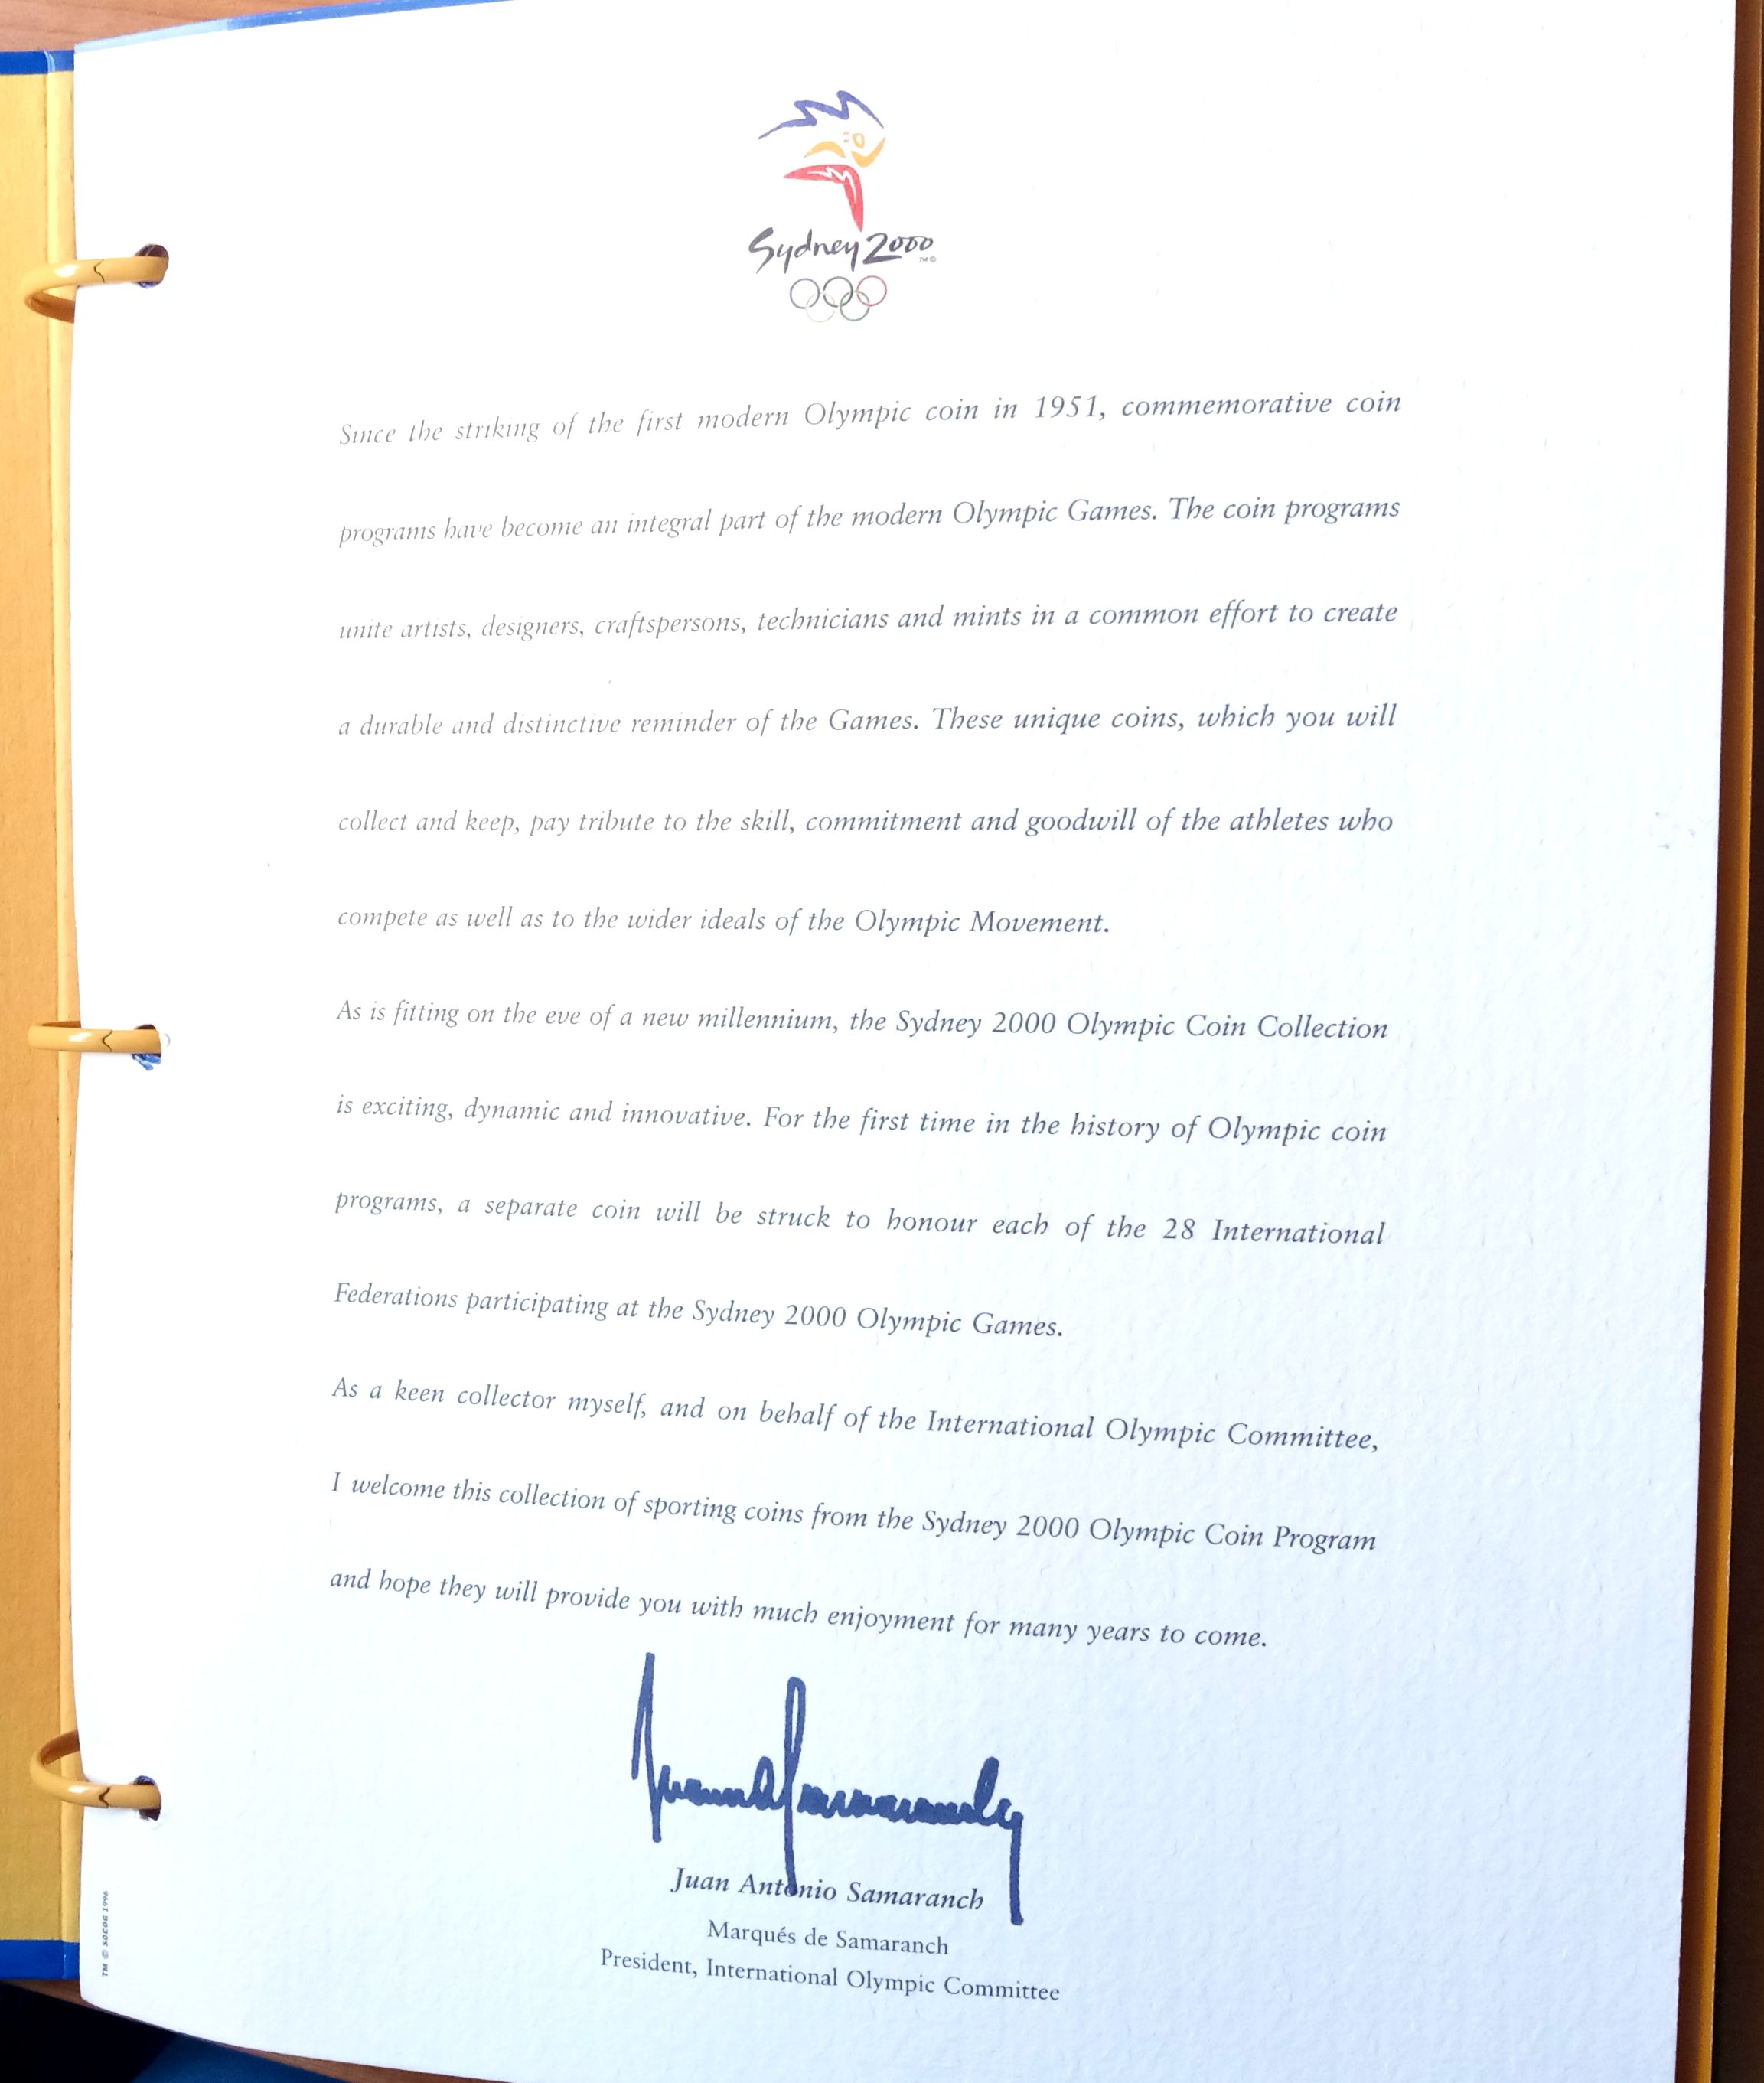 Sydney 2000
TM ©
Since the striking of the first modern Olympic coin in 1951, commemorative coin
programs have become an integral part of the modern Olympic Games. The coin programs
unite artists, designers, craftspersons, technicians and mints in a common effort to create
a durable and distinctive reminder of the Games. These unique coins, which you will
collect and keep, pay tribute to the skill, commitment and goodwill of the athletes who
compete as well as to the wider ideals of the Olympic Movement.
As is fitting on the eve of a new millennium, the Sydney 2000 Olympic Coin Collection
is exciting, dynamic and innovative. For the first time in the history of Olympic coin
programs, a separate coin will be struck to honour each of the 28 International
Federations participating at the Sydney 2000 Olympic Games.
As a keen collector myself, and on behalf of the International Olympic Committee,
I welcome this collection of sporting coins from the Sydney 2000 Olympic Coin Program
and hope they will provide you with much enjoyment for many years to come.
Juan Antonio Samaranch
Marqués de Samaranch
President, International Olympic Committee
TM © SOCOG 1996